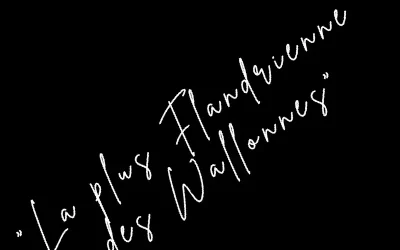 "La plus Flandrienne
des Wallonnes"